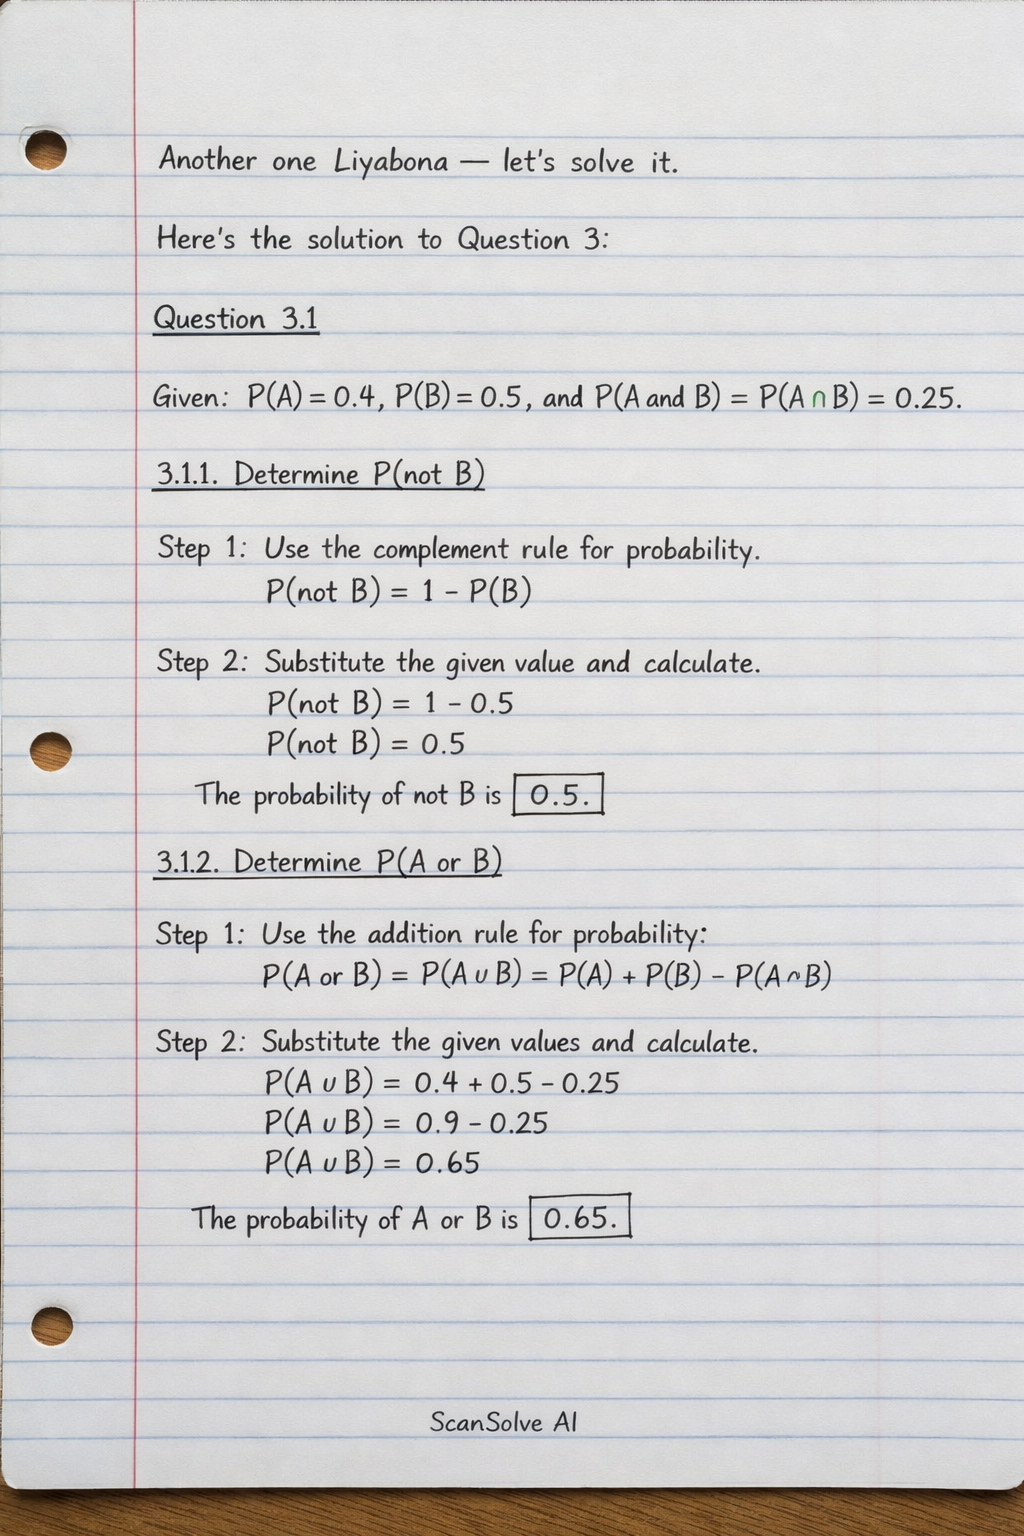 Another one Liyabona — let's solve it.
Here's the solution to Question 3:
Question 3.1
Given: P(A) = 0.4, P(B) = 0.5, and P(A and B) = P(A ∩ B) = 0.25.
3.1.1. Determine P(not B)
Step 1: Use the complement rule for probability.
P(not B) = 1 - P(B)
Step 2: Substitute the given value and calculate.
P(not B) = 1 - 0.5
P(not B) = 0.5
The probability of not B is 0.5.
3.1.2. Determine P(A or B)
Step 1: Use the addition rule for probability:
P(A or B) = P(A ∪ B) = P(A) + P(B) - P(A ∩ B)
Step 2: Substitute the given values and calculate.
P(A ∪ B) = 0.4 + 0.5 - 0.25
P(A ∪ B) = 0.9 - 0.25
P(A ∪ B) = 0.65
The probability of A or B is 0.65.
ScanSolve AI